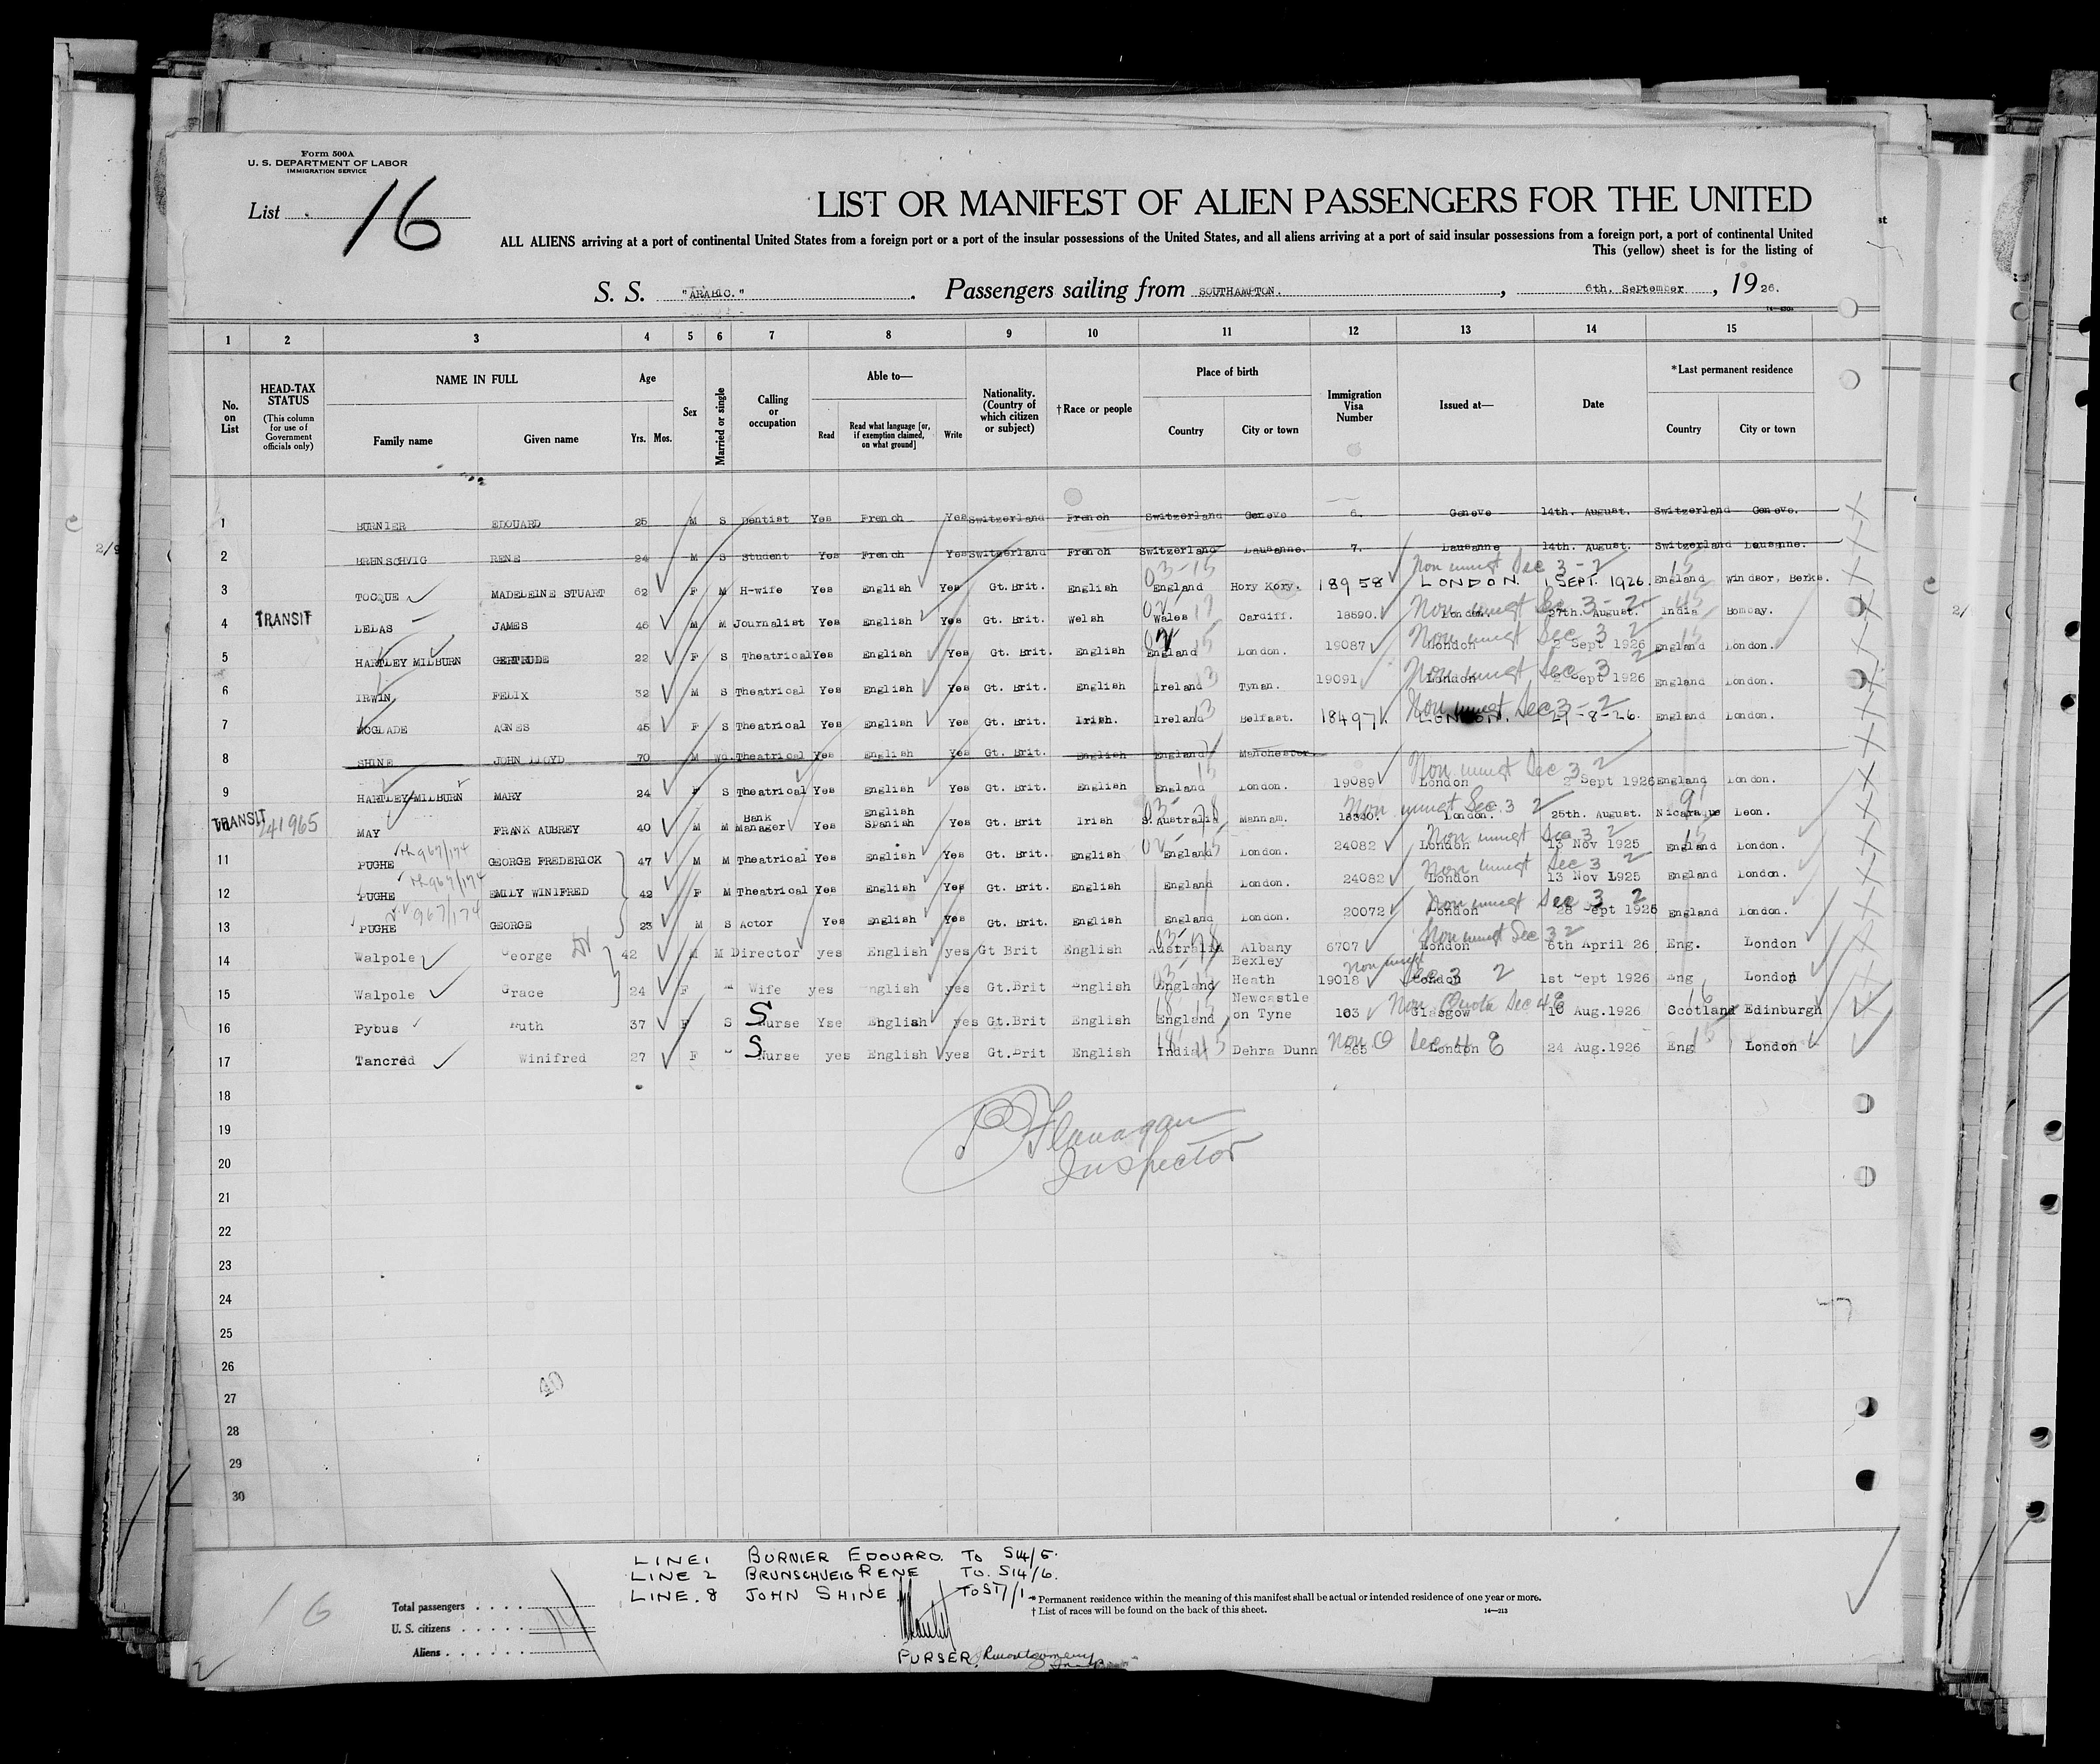 Form 500A
U. S. DEPARTMENT OF LABOR
IMMIGRATION SERVICE
List 16
LIST OR MANIFEST OF ALIEN PASSENGERS FOR THE UNITED
ALL ALIENS arriving at a port of continental United States from a foreign port or a port of the insular possessions of the United States, and all aliens arriving at a port of said insular possessions from a foreign port, a port of continental United
This (yellow) sheet is for the listing of
S. S. "ARABIC." Passengers sailing from SOUTHAMPTON. , 6th. September , 19 26.
1 2 3 4 5 6 7 8 9 10 11 12 13 14 15
No. on List
HEAD-TAX STATUS (This column for use of Government officials only)
NAME IN FULL Family name Given name
Age Yrs. Mos.
Sex
Married or single
Calling or occupation
Able to— Read Read what language [or, if exemption claimed, on what ground] Write
Nationality. (Country of which citizen or subject)
†Race or people
Place of birth Country City or town
Immigration Visa Number
Issued at—
Date
*Last permanent residence Country City or town
1 BURNIER EDOUARD 25 M S Dentist Yes French Yes Switzerland French Switzerland Geneve 6. Geneve 14th. August. Switzerland Geneve.
2 BRENSCHVIG RENE 24 M S Student Yes French Yes Switzerland French Switzerland Lausanne. 7. Lausanne 14th. August. Switzerland Lausanne.
Non immgt Sec 3-2
3 TOCQUE MADELEINE STUART 62 F M H-wife Yes English Yes Gt.Brit. English England Hory Kory. 18958 LONDON. 1 SEPT. 1926. England Windsor, Berks.
Non immgt Sec 3-2
4 TRANSIT LELAS JAMES 46 M M Journalist Yes English Yes Gt. Brit. Welsh Wales Cardiff. 18590. London. 27th. August. India Bombay.
Non immgt Sec 3 2
5 HARTLEY MILBURN GERTRUDE 22 F S Theatrical Yes English Yes Gt. Brit. English England London. 19087 London 2 Sept 1926 England London.
Non immgt Sec 3 2
6 IRWIN FELIX 32 M S Theatrical Yes English Yes Gt. Brit. English Ireland Tynan. 19091 London 2 Sept 1926 England London.
Non immgt Sec 3-2
7 MCGLADE AGNES 45 F S Theatrical Yes English Yes Gt. Brit. Irish. Ireland Belfast. 18497. LONDON. 27-8-26. England London.
8 SHINE JOHN LLOYD 70 M Wd. Theatrical Yes English Yes Gt. Brit. English England Manchester.
Non immgt Sec 3 2
9 HARTLEY MILBURN MARY 24 F S Theatrical Yes English Yes Gt. Brit. English England London. 19089 London 2 Sept 1926 England London.
Non immgt Sec 3 2
TRANSIT 241965 MAY FRANK AUBREY 40 M M Bank Manager Yes English Spanish Yes Gt. Brit Irish S. Australia Mannam. 18340. London. 25th. August. Nicaragua Leon.
Non immgt Sec 3 2
11 PUGHE 967/174 GEORGE FREDERICK 47 M M Theatrical Yes English Yes Gt. Brit. English England London. 24082 London 13 Nov 1925 England London.
Non immgt Sec 3 2
12 PUGHE 967/174 EMILY WINIFRED 42 F M Theatrical Yes English Yes Gt. Brit. English England London. 24082 London 13 Nov 1925 England London.
Non immgt Sec 3 2
13 PUGHE 967/174 GEORGE 23 M S Actor Yes English Yes Gt. Brit. English England London. 20072 London 28 Sept 1925 England London.
Non immgt Sec 3 2
14 Walpole George 42 M M Director yes English yes Gt Brit English Australia Albany 6707 London 6th April 26 Eng. London
Non immgt Sec 3 2
15 Walpole Grace 24 F M Wife yes English yes Gt.Brit English England Bexley Heath 19018 London 1st Sept 1926 Eng London
Non Quota Sec 4 e
16 Pybus Ruth 37 F S S Nurse Yse English yes Gt.Brit English England Newcastle on Tyne 103 Glasgow 10 Aug.1926 Scotland Edinburgh
Non Q Sec 4 e
17 Tancred Winifred 27 F " S Nurse yes English yes Gt.Brit English India Dehra Dunn 265 London 24 Aug.1926 Eng London
18
19
20
21
22
23
24
25
26
27
28
29
30
Flanagan
Inspector
LINE 1 BURNIER EDOUARD. TO S14/5.
LINE 2 BRUNSCHVEIG RENE TO. S14/6.
LINE. 8 JOHN SHINE TO S17/1
16
Total passengers
U. S. citizens
Aliens
* Permanent residence within the meaning of this manifest shall be actual or intended residence of one year or more.
† List of races will be found on the back of this sheet. 14—213
PURSER.